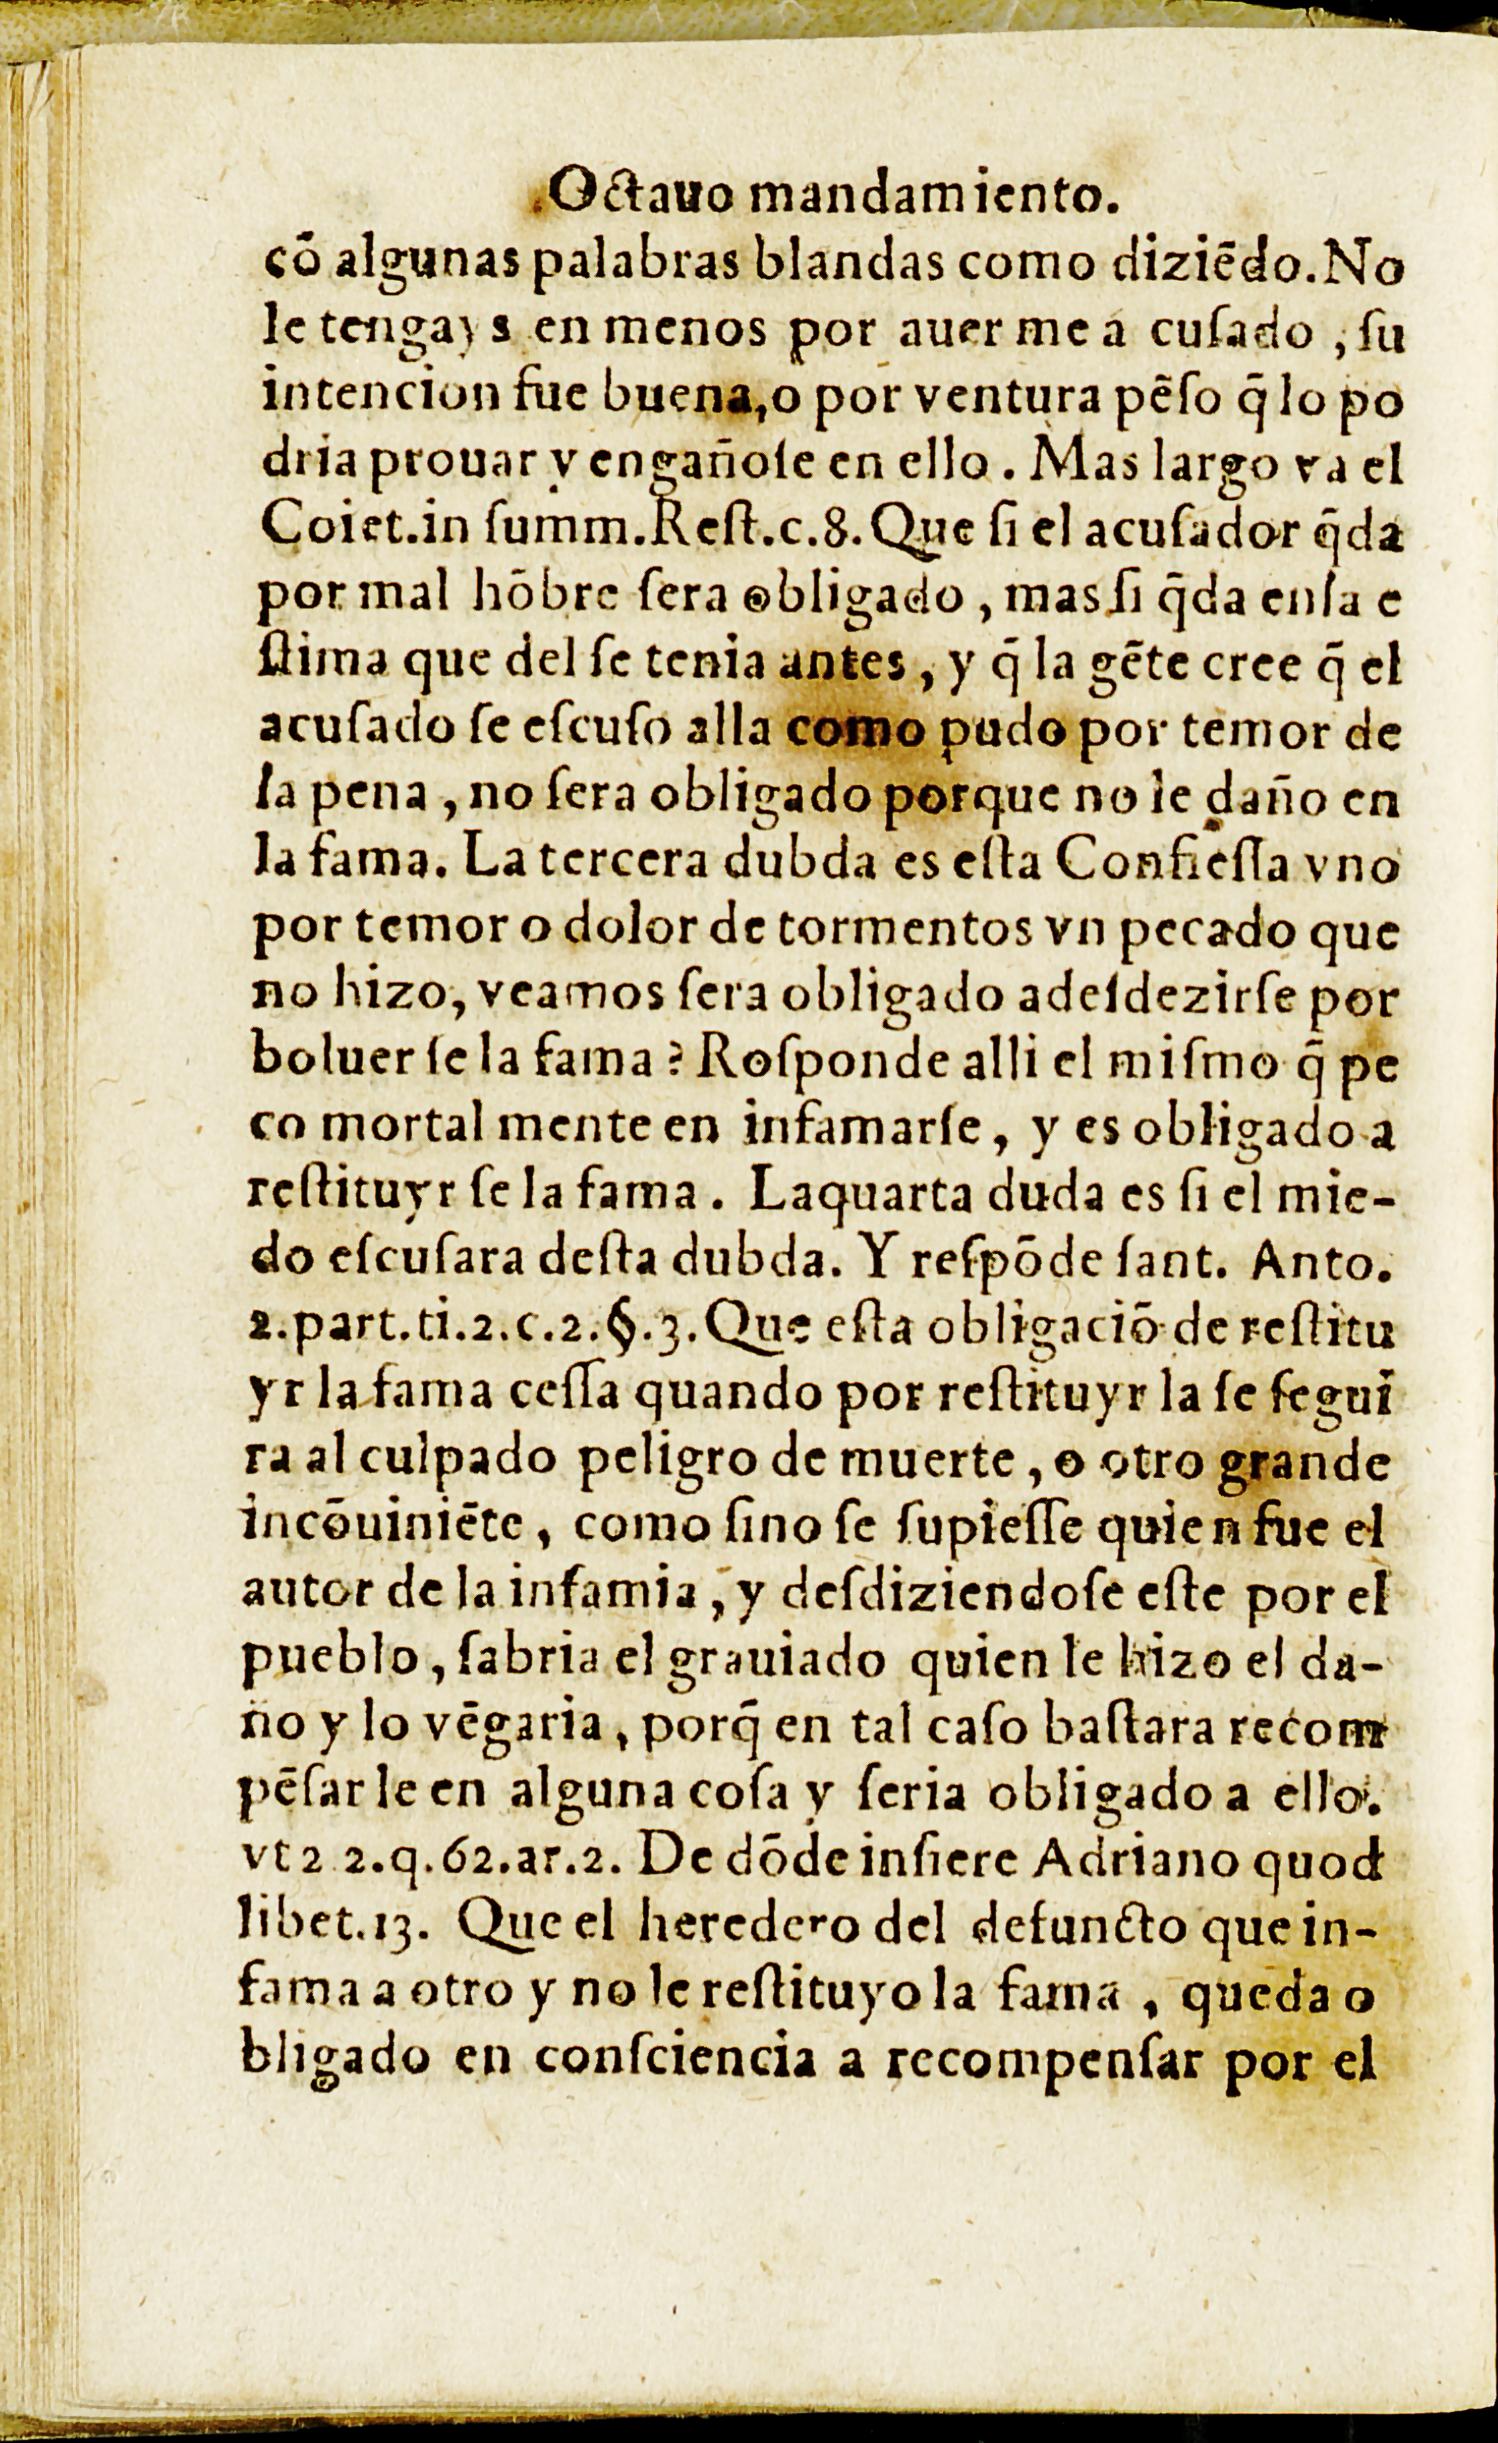 Octauo mandamiento.
cō algunas palabras blandas como diziēdo. No
le tengays en menos por auer me a cuſado, ſu
intencion fue buena, o por ventura pēſo q̄ lo po
dria prouar y engañoſe en ello. Mas largo va el
Coiet. in ſumm. Reſt. c. 8. Que ſi el acuſador q̄da
por mal hōbre ſera obligado, mas ſi q̄da enla e
ſtima que del ſe tenia antes, y q̄ la gēte cree q̄ el
acuſado ſe eſcuſo alla como pudo por temor de
la pena, no ſera obligado porque no le daño en
la fama. La tercera dubda es eſta Confieſſa vno
por temor o dolor de tormentos vn pecado que
no hizo, veamos ſera obligado adeſdezirſe por
boluer ſe la fama? Roſponde alli el miſmo q̄ pe
co mortal mente en infamarſe, y es obligado a
reſtituyr ſe la fama. Laquarta duda es ſi el mie-
do eſcuſara deſta dubda. Y reſpōde ſant. Anto.
2. part. ti. 2. c. 2. §. 3. Que eſta obligaciō de reſtitu
yr la fama ceſſa quando por reſtituyr la ſe ſegui
ra al culpado peligro de muerte, o otro grande
incōuiniēte, como ſino ſe ſupieſſe quien fue el
autor de la infamia, y deſdiziendoſe eſte por el
pueblo, ſabria el grauiado quien le hizo el da-
ño y lo vēgaria, porq̄ en tal caſo baſtara recom
pēſar le en alguna coſa y ſeria obligado a ello.
vt 2 2. q. 62. ar. 2. De dōde inſiere Adriano quod
libet. 13. Que el heredero del defuncto que in-
fama a otro y no le reſtituyo la fama, queda o
bligado en conſciencia a recompenſar por el